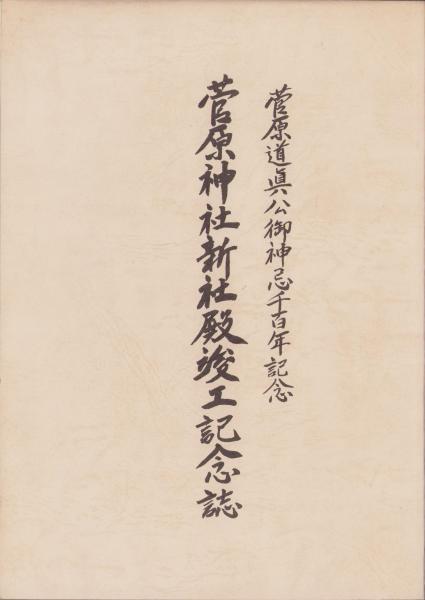 菅原道眞公御神忌千百年記念
菅原神社新社殿竣工記念誌